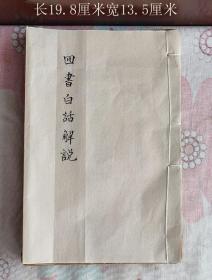 长19.8厘米宽13.5厘米
回書白話解說